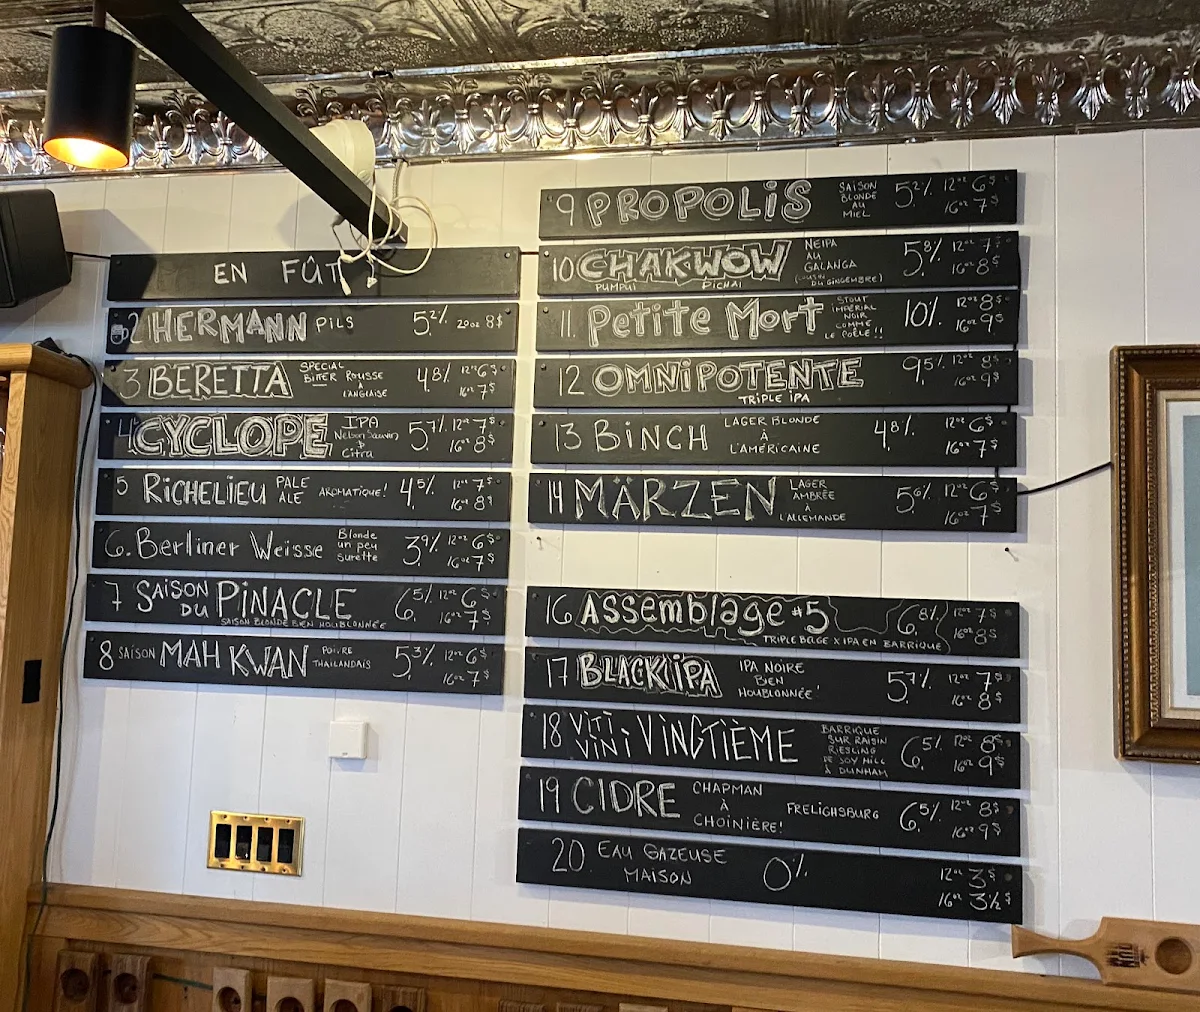 EN FÛT
2 HERMANN PILS 5.2% 20oz 8$
3 BERETTA SPECIAL BITER ROUSSE À L'ANGLAISE 4.8% 12oz 6$ 16oz 7$
4 CYCLOPE IPA Nelson Sauvin & Citra 5.7% 12oz 7$ 16oz 8$
5 RICHELIEU PALE ALE AROMATIQUE! 4.5% 12oz 7$ 16oz 8$
6. Berliner Weisse Blonde un peu surette 3.9% 12oz 6$ 16oz 7$
7 SAISON DU PINACLE SAISON BLONDE BIEN HOUBLONNÉE 6.5% 12oz 6$ 16oz 7$
8 SAISON MAH KWAN POIVRE THAILANDAIS 5.3% 12oz 6$ 16oz 7$
9 PROPOLIS SAISON BLONDE AU MIEL 5.2% 12oz 6$ 16oz 7$
10 CHAKWOW PUMPUI PICHAI NEIPA AU GALANGA (COUSIN DU GINGEMBRE) 5.8% 12oz 7$ 16oz 8$
11. Petite Mort STOUT IMPÉRIAL NOIR COMME LE POÊLE!! 10% 12oz 8$ 16oz 9$
12 OMNIPOTENTE TRIPLE IPA 9.5% 12oz 8$ 16oz 9$
13 BINCH LAGER BLONDE À L'AMÉRICAINE 4.8% 12oz 6$ 16oz 7$
14 MÄRZEN LAGER AMBRÉE À L'ALLEMANDE 5.6% 12oz 6$ 16oz 7$
16 ASSEMBlAGE #5 TRIPLE BELGE X IPA EN BARRIQUE 6.8% 12oz 7$ 16oz 8$
17 BLACK IPA IPA NOIRE BIEN HOUBLONNÉE! 5.7% 12oz 7$ 16oz 8$
18 VITI VINI VINGTIÈME BARRIQUE SUR RAISIN RIESLING DE SOY HILL À DUNHAM 6.5% 12oz 8$ 16oz 9$
19 CIDRE CHAPMAN À CHOINIÈRE! FRELIGHSBURG 6.5% 12oz 8$ 16oz 9$
20 EAU GAZEUSE MAISON 0% 12oz 3$ 16oz 3½$